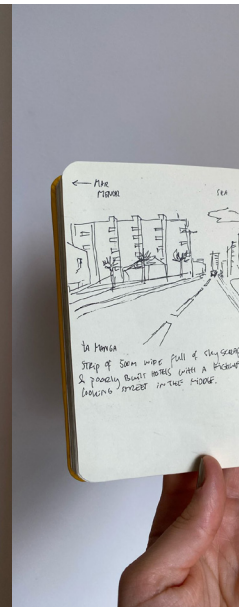 ← MAR
MENOR
SEA
LA MANGA
STRIP OF 500M WIDE FULL OF SKYSCRAP
& POORLY BUILT HOTELS WITH A
LOOKING STREET IN THE MIDDLE.